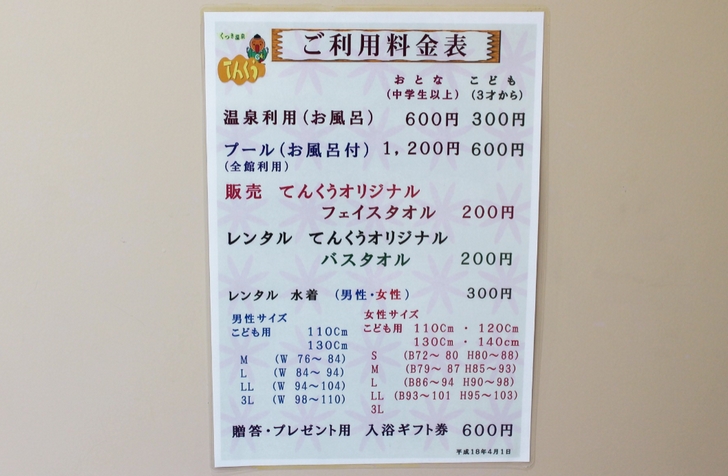 くつき温泉
てんくう
ご利用料金表
おとな こども
(中学生以上) (3才から)
温泉利用(お風呂) 600円 300円
プール(お風呂付) 1,200円 600円
(全館利用)
販売 てんくうオリジナル
フェイスタオル 200円
レンタル てんくうオリジナル
バスタオル 200円
レンタル 水着 (男性・女性) 300円
男性サイズ
こども用 110Cm
130Cm
M (W 76～ 84)
L (W 84～ 94)
LL (W 94～104)
3L (W 98～110)
女性サイズ
こども用 110Cm ・ 120Cm
130Cm ・ 140cm
S (B72～ 80 H80～88)
M (B79～ 87 H85～93)
L (B86～94 H90～98)
LL (B93～101 H95～103)
3L
贈答・プレゼント用 入浴ギフト券 600円
平成18年4月1日